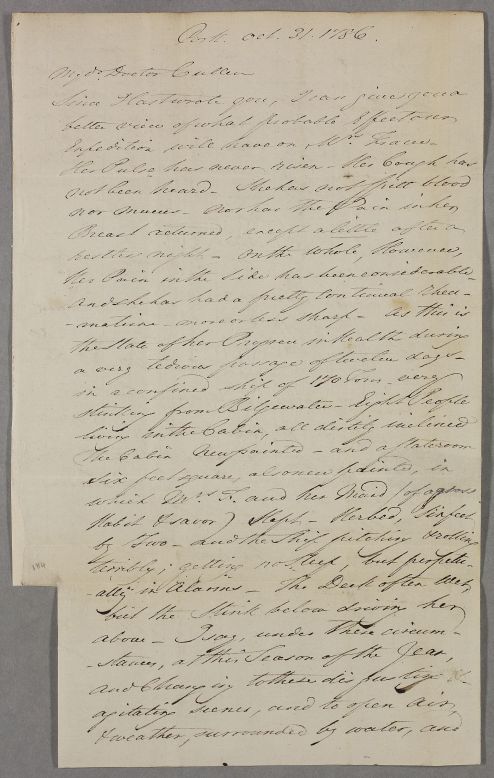 Cork. Oct. 31. 1786.
My dr. Doctor Cullen
Since I last wrote you, I can give you a
better view of what probable effects our
Expedition will have on Mrs.
Her Pulse has never risen - Her Cough has
not been heard - She has not spitt blood
nor mucus - nor has the Pain in her
Breast returned, except a little after a
restless night - on the whole, However,
her Pain in the Side has been considerable
and she has had a pretty continual Rheu-
-matism - more or less sharp - as this is
the State of her Progress in Health during
a very tedious passage of twelve days -
in a confined ship of 170 Tons - very
stinking from Bilgewater - Eight People
living in the Cabin, all inclined
the Cabin New painted - and a Stateroom
Six feet square, also new painted, in
which Mrs. F. and her Maid (of a gross
Habit & savor) Slept - Her bed, 5 feet
by Two - and the Ship pitching & rolling
terribly; getting no Sleep, but perpetu-
-ally in Alarms - The Deck often wet,
but the Stink below driving her
above - I say, under these circum-
-stances, at this Season of the Year,
and Changing to these disgusting &
agitating Scenes, and to open Air,
& weather, surrounded by water, and
184